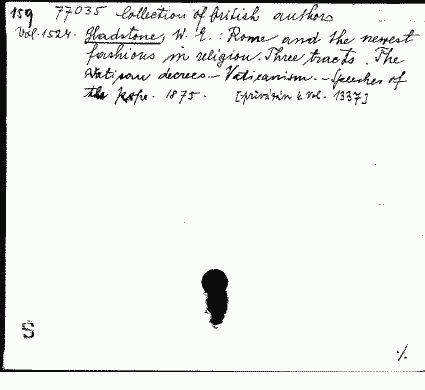 159 77035 Collection of British authors
Vol. 1524. Gladstone, W. E.: Rome and the newest
fashions in religion. Three tracts. The
Vatican decrees. - Vaticanism. - Speeches of
the Pope. 1875. [přivázán k vol. 1337]
S
./.